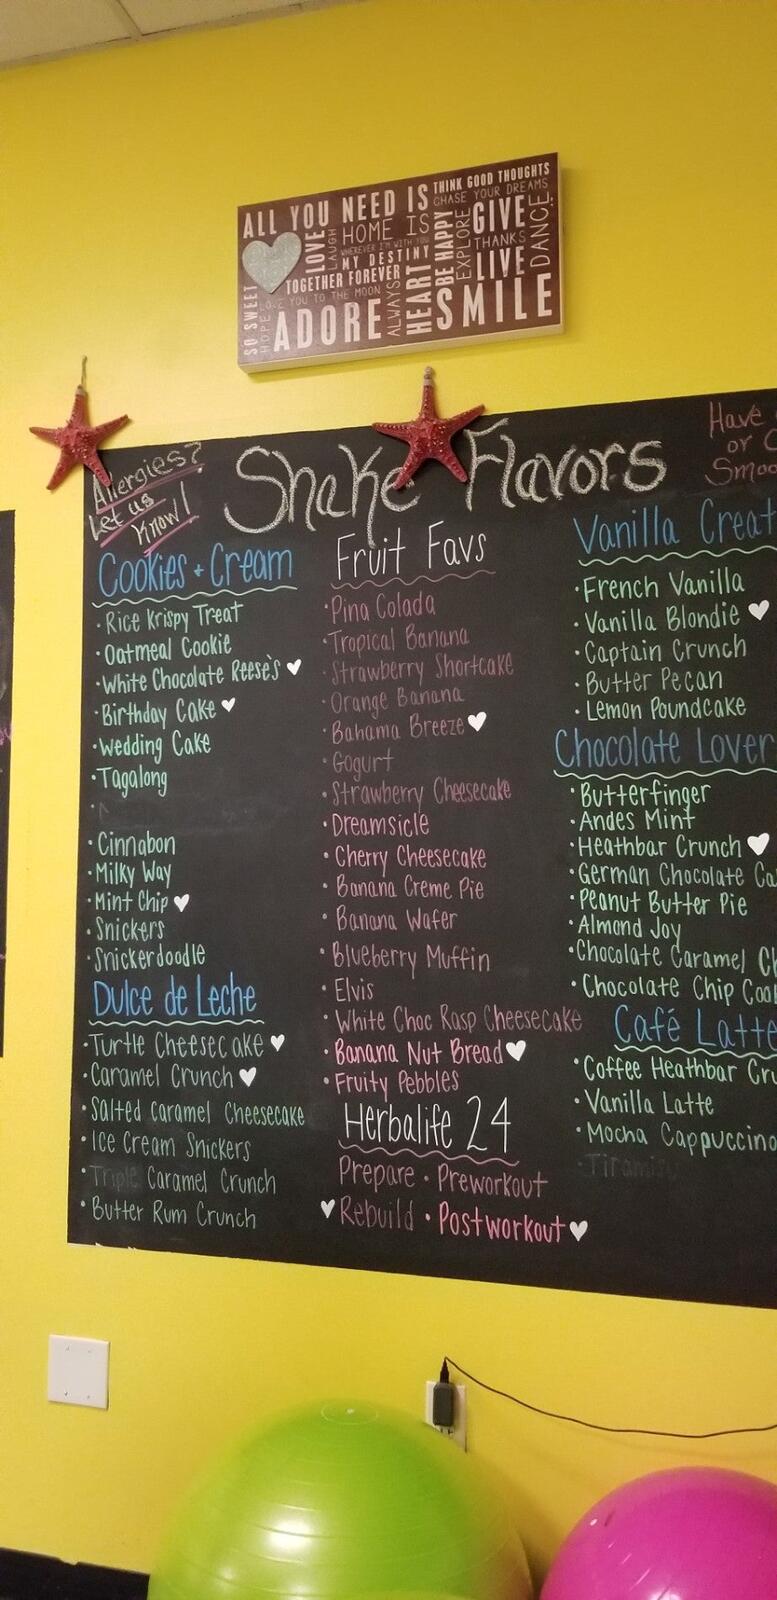 ALL YOU NEED IS
LOVE
LAUGH
HOME IS
WHEREVER I'M WITH YOU
MY DESTINY
TOGETHER FOREVER
YOU TO THE MOON
SO SWEET
HOPE
ADORE
ALWAYS
HEART
BE HAPPY
THINK GOOD THOUGHTS
CHASE YOUR DREAMS
EXPLORE
GIVE
THANKS
LIVE
DANCE
SMILE
Allergies?
Let us
Know!
Shake Flavors
Have
or
Cookies + Cream
• Rice Krispy Treat
• Oatmeal Cookie
• White Chocolate Reese's
• Birthday Cake
• Wedding Cake
• Tagalong
• Cinnabon
• Milky Way
• Mint Chip
• Snickers
• Snickerdoodle
Dulce de Leche
• Turtle Cheesecake
• Caramel Crunch
• Salted Caramel Cheesecake
• Ice Cream Snickers
• Triple Caramel Crunch
• Butter Rum Crunch
Fruit Favs
• Pina Colada
• Tropical Banana
• Strawberry Shortcake
• Orange Banana
• Bahama Breeze
• Gogurt
• Strawberry Cheesecake
• Dreamsicle
• Cherry Cheesecake
• Banana Creme Pie
• Banana Wafer
• Blueberry Muffin
• Elvis
• White Choc Rasp Cheesecake
• Banana Nut Bread
• Fruity Pebbles
Herbalife 24
Prepare • Preworkout
Rebuild • Postworkout
Vanilla Creat
• French Vanilla
• Vanilla Blondie
• Captain Crunch
• Butter Pecan
• Lemon Poundcake
Chocolate Lover
• Butterfinger
• Andes Mint
• Heathbar Crunch
• German Chocolate Ca
• Peanut Butter Pie
• Almond Joy
• Chocolate Caramel Ch
• Chocolate Chip Coo
Café Latte
• Coffee Heathbar Cru
• Vanilla Latte
• Mocha Cappuccino